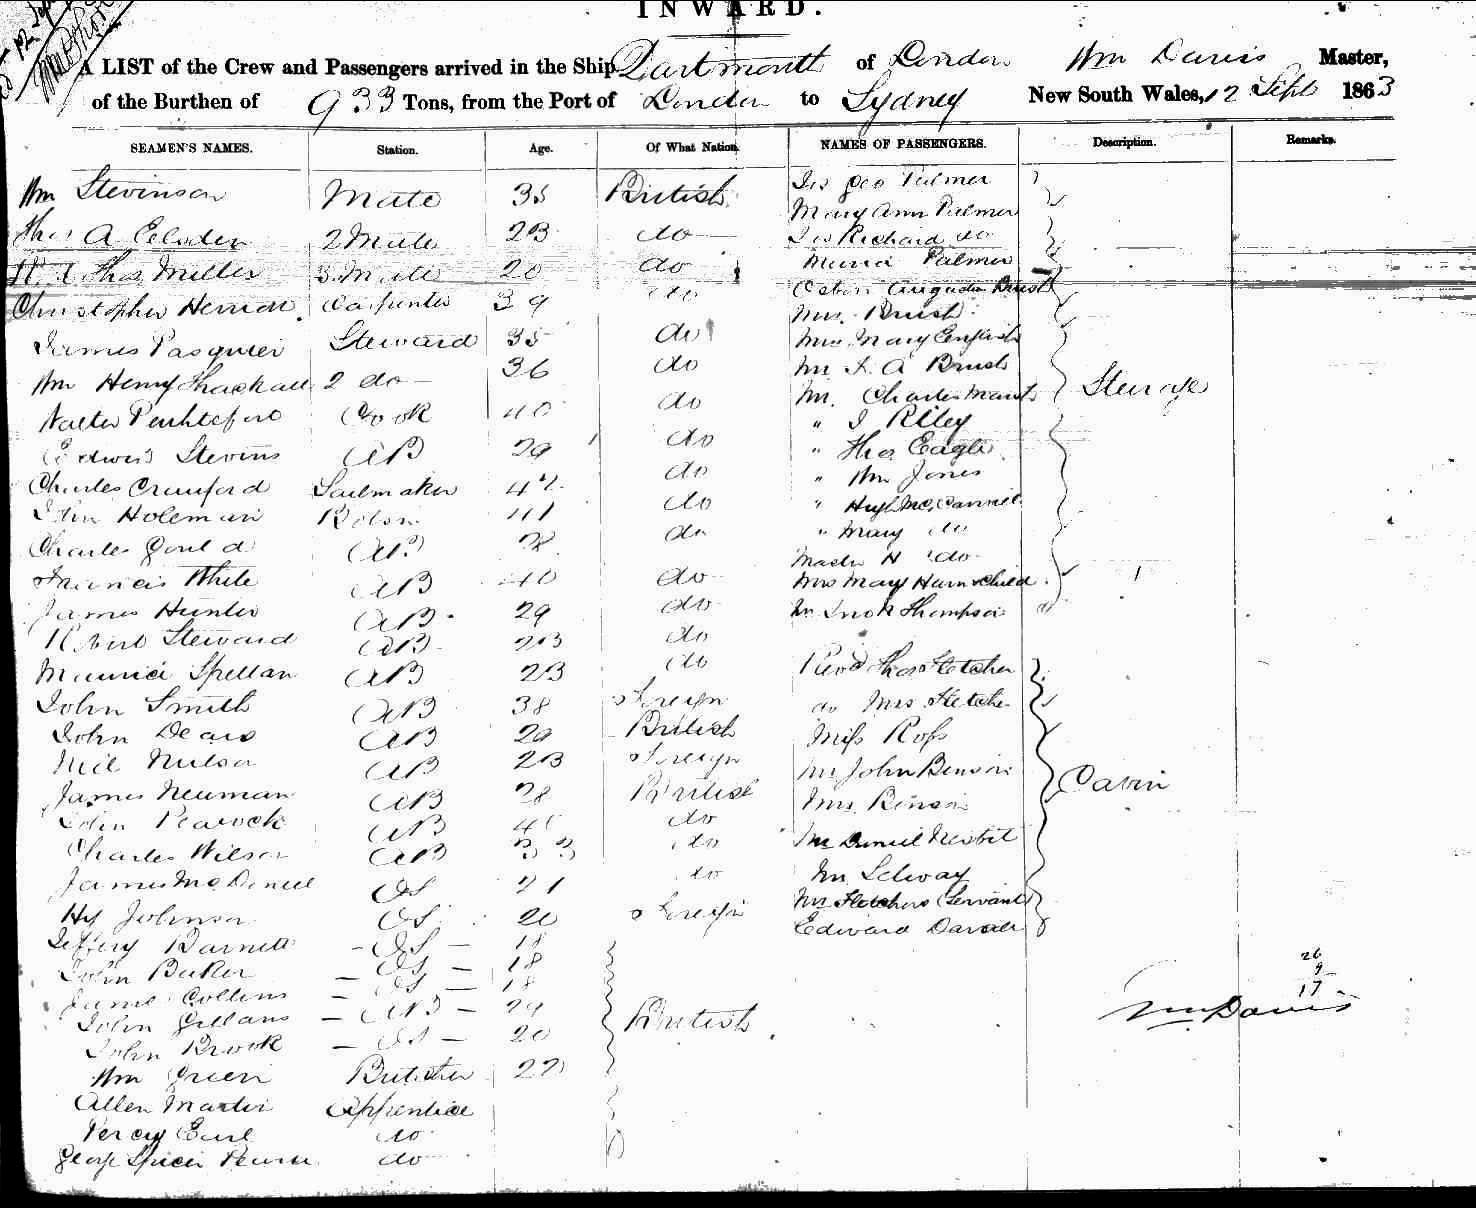 INWARD.
A LIST of the Crew and Passengers arrived in the Ship Dartmouth of London Wm Davis Master,
of the Burthen of 933 Tons, from the Port of London to Sydney New South Wales, 12 Sept 1863
SEAMEN'S NAMES. Station. Age. Of What Nation. NAMES OF PASSENGERS. Description. Remarks.
Wm Stevinson Mate 35 British Palmer
Mary Ann Palmer
Thos A 2 Mate 23 do Richard do
Thos Miller 3 Mate 20 do Maria Palmer
Christopher Carpenter 39 do
Mrs. Brush
James Pasquier Steward 35 do Mrs Mary English
Wm Henry 2 do 36 do Mr A Brush
Walter Cook 40 do Mr. Charles Steerage
" J Riley
Edwin Stevins AB 29 do " Thos Eagle
Charles Crawford Sailmaker do " Wm Jones
John Holeman do " Hugh
" Mary do
Charles Gould AB do Master H do
Francis White AB 40 do Mrs Mary child
James Hunter AB 29 do Mr Thompson
Robert Steward AB 23 do
Maurice Spellan AB 23 do Revd Thos Fletcher
John Smith AB 38 Foreign do Mrs Fletcher
John Deans AB 29 British Miss Ross
Neil AB 23 Foreign Mr John Benson
James Neuman AB 28 British Mrs Benson Cabin
John Peacock AB do
Charles Wilson AB 33 do Mr Daniel
James McDaniel OS 21 do Mr Selway
Hy Johnson OS 20 Foreign Mrs Fletchers Servant
Edward
Jeffery Barnett OS 18
John Baker OS 18 26
James Collins OS 18 9
John AB 29 British 17
John Brook OS 20 Wm Davis
Wm Green Butcher 22
Allen Martin Apprentice
Percy Earl do
George Spicer do